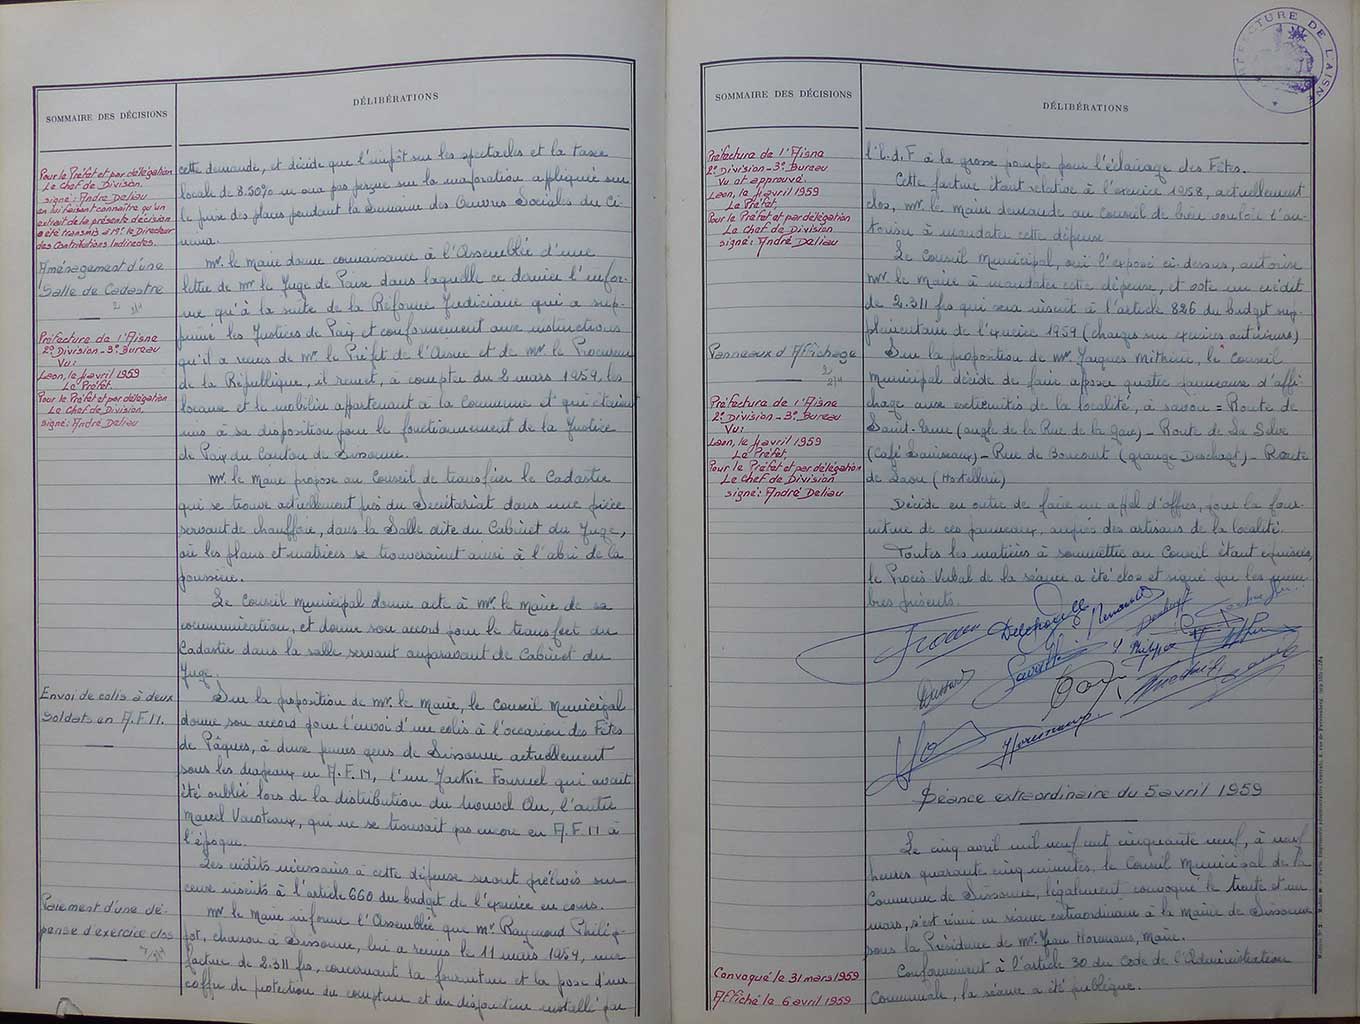 SOMMAIRE DES DÉCISIONS
DÉLIBÉRATIONS
Pour le Préfet et par délégation
Le Chef de Division.
signé: André Deliau
en lui faisant connaître qu'un
extrait de la présente décision
a été transmis à Mr. le Directeur
des Contributions Indirectes.
Aménagement d'une
Salle de Cadastre
Préfecture de l'Aisne
2e Division - 3e Bureau
Vu:
Laon, le 4 avril 1959
Le Préfet.
Pour le Préfet et par délégation
Le Chef de Division,
signé: André Deliau
Envoi de colis à deux
soldats en A.F.N.
Paiement d'une dé-
pense d'exercice clos
cette demande, et décide que l'impôt sur les spectacles et la taxe
locale de 8.50% ne sera pas perçue sur la majoration appliquée sur
le prix des places pendant la Semaine des Oeuvres Sociales du Ci-
néma.
Mr. le Maire donne connaissance à l'Assemblée d'une
lettre de Mr. le Juge de Paix dans laquelle ce dernier l'infor-
me qu'à la suite de la Réforme Judiciaire qui a sup-
primé les Justices de Paix et conformément aux instructions
qu'il a reçues de Mr. le Préfet de l'Aisne et de Mr. le Procureur
de la République, il remet, à compter du 2 mars 1959, les
locaux et le mobilier appartenant à la Commune et qui étaient
mis à sa disposition pour le fonctionnement de la Justice
de Paix du Canton de Sissonne.
Mr. le Maire propose au Conseil de transférer le Cadastre
qui se trouve actuellement près du Secrétariat dans une pièce
servant de chaufferie, dans la Salle dite du Cabinet du Juge,
où les plans et matrices se trouveraient ainsi à l'abri de la
poussière.
Le Conseil Municipal donne acte à Mr. le Maire de sa
communication, et donne son accord pour le transfert du
Cadastre dans la salle servant auparavant de Cabinet du
Juge.
Sur la proposition de Mr. le Maire, le Conseil Municipal
donne son accord pour l'envoi d'un colis à l'occasion des Fêtes
de Pâques, à deux jeunes gens de Sissonne actuellement
sous les drapeaux en A.F.N, l'un Jackie Fournel qui avait
été oublié lors de la distribution du Nouvel An, l'autre
Marcel, qui ne se trouvait pas encore en A.F.N à
l'époque.
Les crédits nécessaires à cette dépense seront prélevés sur
ceux inscrits à l'article 660 du budget de l'exercice en cours.
Mr. le Maire informe l'Assemblée que Mr. Raymond Philip-
pot, charron à Sissonne, lui a remis le 11 mars 1959, une
facture de 2.311 frs, concernant la fourniture et la pose d'un
coffre de protection du compteur et du disjoncteur installé par
SOMMAIRE DES DÉCISIONS
DÉLIBÉRATIONS
PRÉFECTURE DE L'AISNE
Préfecture de l'Aisne
2e Division - 3e Bureau
Vu et approuvé
Laon, le 4 avril 1959
Le Préfet,
Pour le Préfet et par délégation
Le Chef de Division
signé: André Deliau
Panneaux d'Affichage
Préfecture de l'Aisne
2e Division - 3e Bureau
Vu:
Laon, le 4 avril 1959
Le Préfet,
Pour le Préfet et par délégation
Le Chef de Division
signé: André Deliau
Convoqué le 31 mars 1959
Affiché le 6 avril 1959
l'E.d.F à la grosse pompe pour l'éclairage des Fêtes.
Cette facture étant relative à l'exercice 1958, actuellement
clos, Mr. le Maire demande au Conseil de bien vouloir l'au-
toriser à mandater cette dépense
Le Conseil Municipal, ouï l'exposé ci-dessus, autorise
Mr. le Maire à mandater cette dépense, et vote un crédit
de 2.311 frs qui sera inscrit à l'article 826 du budget sup-
plémentaire de l'exercice 1959 (charges sur exercices antérieurs)
Sur la proposition de Mr. Jacques, le Conseil
Municipal décide de faire apposer quatre panneaux d'affi-
chage aux extrémités de la localité, à savoir = Route de
Saint-Erme (angle de la Rue de la Gare) - Route de La Selve
(Café) - Rue de Boncourt (grange) - Route
de Laon (Hostellerie)
Décide en outre de faire un appel d'offres, pour la four-
niture de ces panneaux, auprès des artisans de la localité.
Toutes les matières à soumettre au Conseil étant épuisées,
le Procès Verbal de la séance a été clos et signé par les mem-
bres présents.
Séance extraordinaire du 5 avril 1959
Le cinq avril mil neuf cent cinquante neuf, à neuf
heures quarante cinq minutes, le Conseil Municipal de la
Commune de Sissonne, légalement convoqué le trente et un
mars, s'est réuni en séance extraordinaire à la Mairie de Sissonne
sous la Présidence de Mr. Jean Horemans, Maire.
Conformément à l'article 30 du Code de l'Administration
Communale, la séance a été publique.